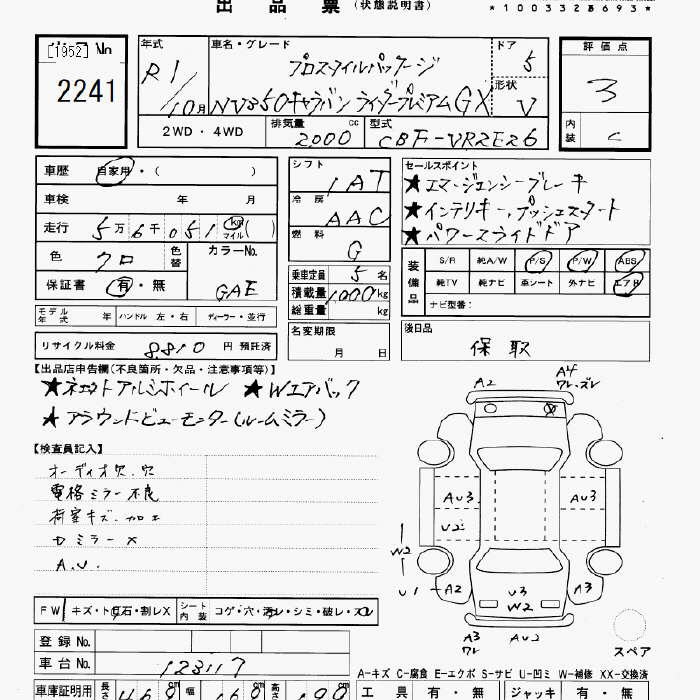 出品票（状態説明書） *100332B693*
[1952] No
2241
年式 R1/10月
車名・グレード プロスタイルパッケージ
NV350キャラバン ライダープレミアムGX
ドア 5
形状 V
評価点 3
内装 C
2WD・4WD 排気量 2,000 cc 型式 CBF-VR2E26
車歴 自家用・（ ）
車検 年 月
走行 5万6千051 km マイル（ ）
色 クロ 色替 カラーNo. GAE
保証書 有・無
シフト IAT
冷房 AAC
燃料 G
乗車定員 5名
積載量 1000kg
総重量 kg
セールスポイント
★エマージェンシーブレーキ
★インテリキー、プッシュスタート
★パワースライドドア
装備品 S/R 純A/W P/S P/W ABS
純TV 純ナビ 革シート 外ナビ エアB
ナビ型番：
モデル年式 年 ハンドル 左・右 ディーラー・並行
名変期限 月 日
後日品 保 取
リサイクル料金 8,810 円 預託済
【出品店申告欄(不良箇所・欠品・注意事項等)】
★ネオクロトアルミホイール ★Wエアバック
★アラウンドビューモニター(ルームミラー)
【検査員記入】
オーディオ欠.穴
電格ミラー不良
荷室キズ.加工
ロミラー×
A.U.
A2 A4
ワレ.ズレ
AU3 AU3
U2
W2
U1 A2 U3 W2 A3
A3 ワレ AU2
スペア
FW キズ・トビ石・割レX シート内装 コゲ・穴・汚レ・シミ・破レ・スレ
登録No.
車台No. 123117
A-キズ C-腐食 E-エクボ S-サビ U-凹ミ W-補修 XX-交換済
車庫証明用 長さ 468 cm 幅 168 cm 高さ 190 cm
工具 有・無 ジャッキ 有・無